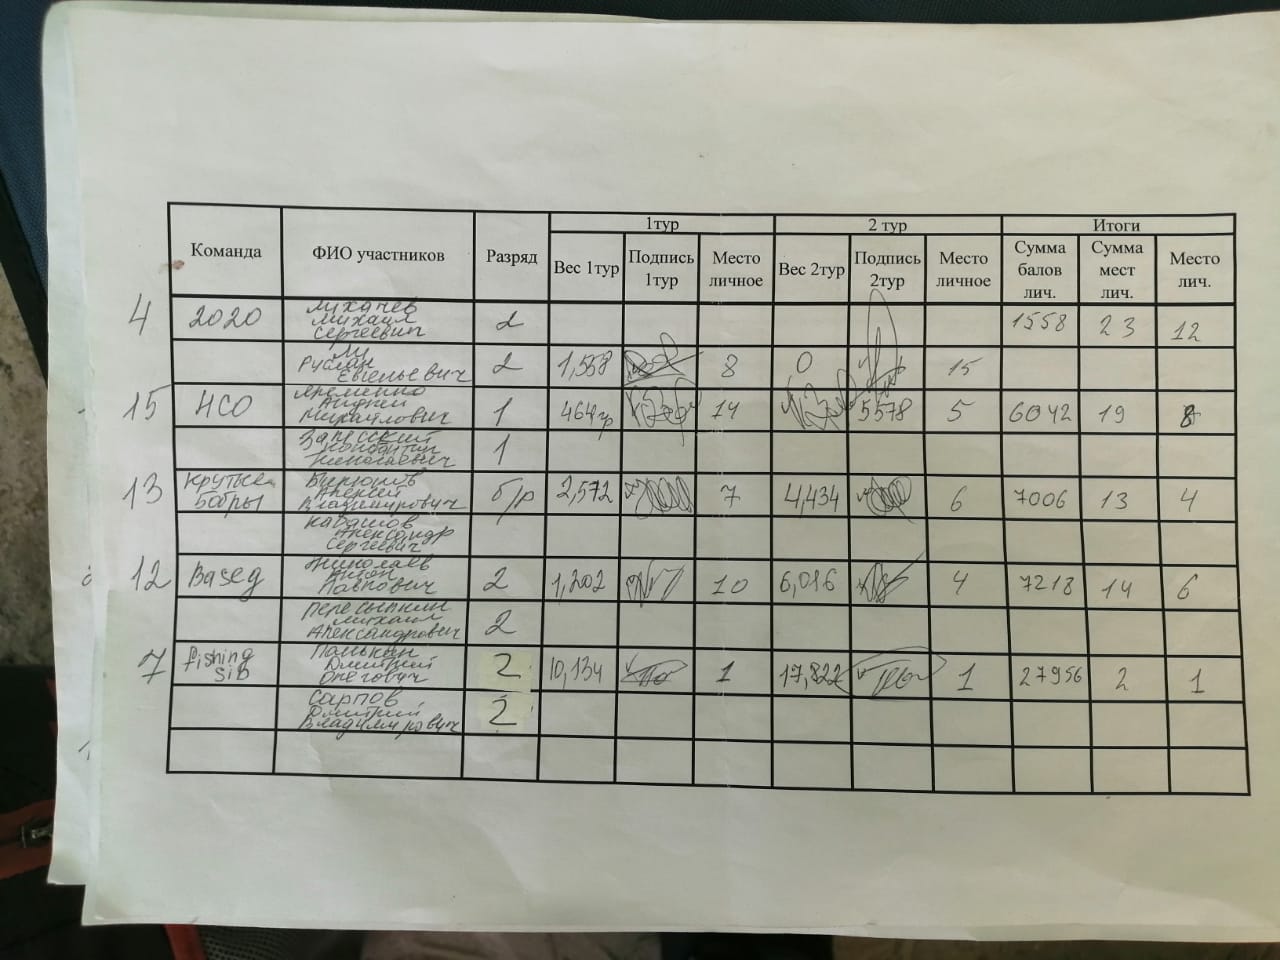 1тур 2 тур Итоги
Команда ФИО участников Разряд Вес 1тур Подпись 1тур Место личное Вес 2тур Подпись 2тур Место личное Сумма балов лич. Сумма мест лич. Место лич.
4 2020 Лихачев Михаил Сергеевич 2 1558 23 12
Руслан Евгеньевич 2 1,558 8 0 15
15 НСО Яременко Андрей Михайлович 1 464гр 14 5578 5 6042 19 8
Николаевич 1
13 Крутые бобры Бирюков Алексей Владимирович б/р 2,572 7 4,434 6 7006 13 4
Кабашов Александр Сергеевич
12 Baseg Николаев Антон Павлович 2 1,202 10 6,016 4 7218 14 6
Пересыпкин Михаил Александрович 2
7 fishing sib Дмитрий Олегович 2 10,134 1 17,822 1 27956 2 1
Сарпов Дмитрий Владимирович 2